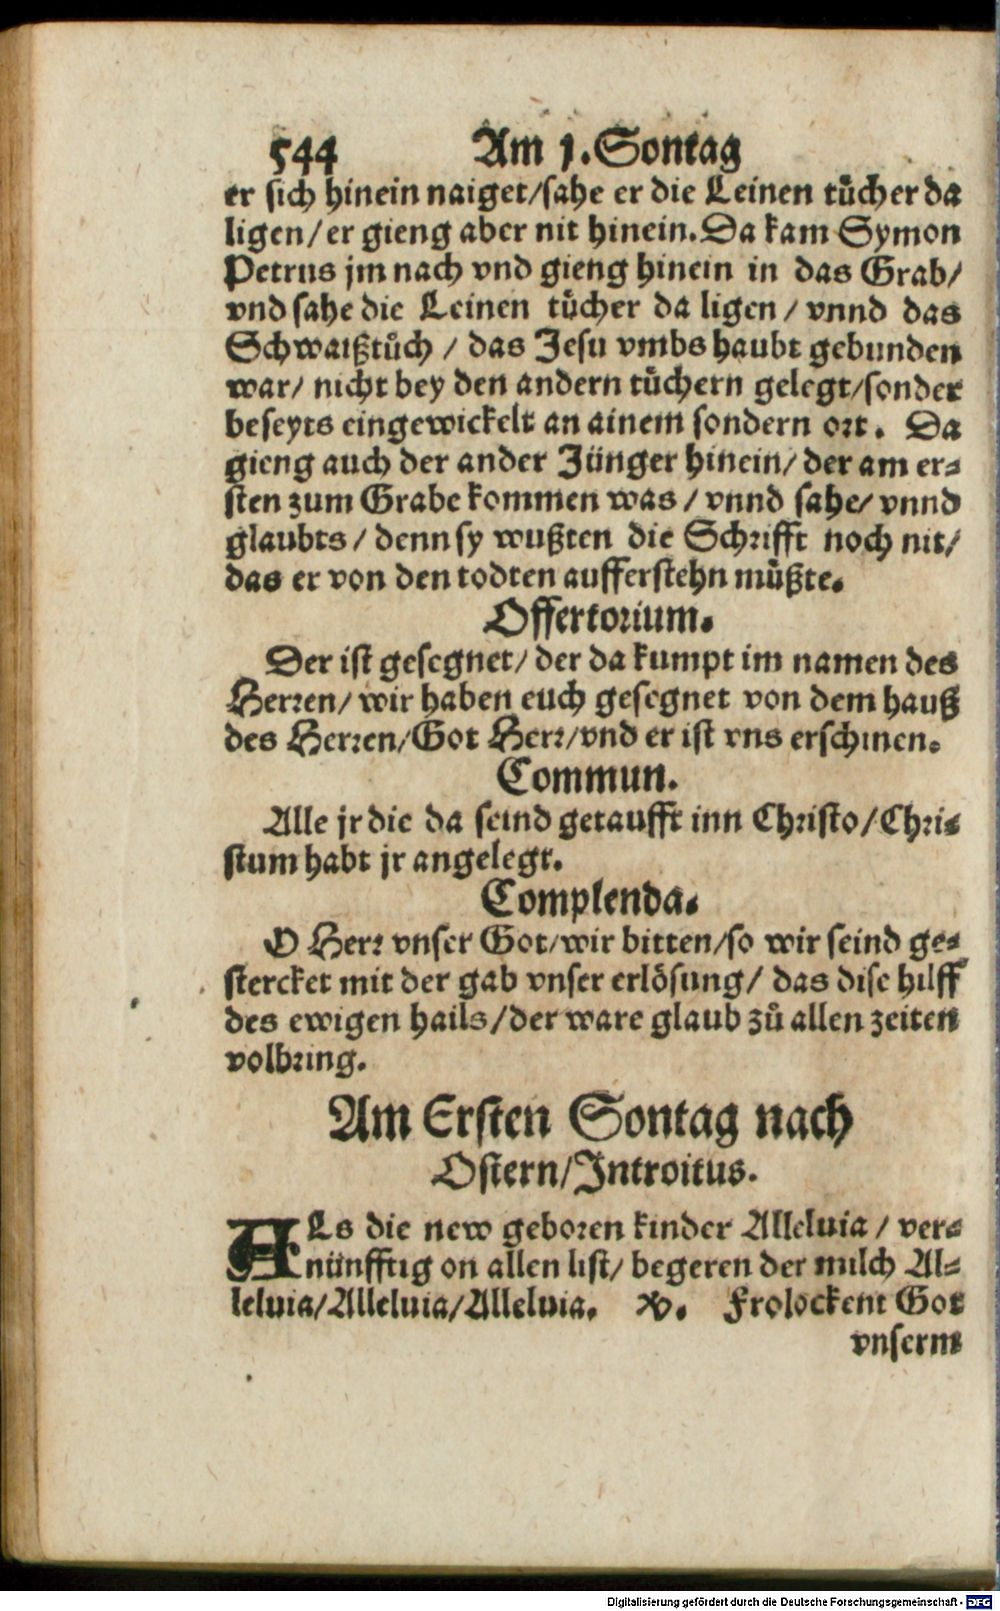 544 Am 1. Sontag
er sich hinein naiget/sahe er die Leinen tuͤcher da
ligen/er gieng aber nit hinein. Da kam Symon
Petrus jm nach vnd gieng hinein in das Grab/
vnd sahe die Leinen tuͤcher da ligen/vnnd das
Schwaißtuͤch/das Jesu vmbs haubt gebunden
war/nicht bey den andern tuͤchern gelegt/sonder
beseyts eingewickelt an ainem sondern ort. Da
gieng auch der ander Jünger hinein/der am er⸗
sten zum Grabe kommen was/vnnd sahe/vnnd
glaubts/denn sy wußten die Schrifft noch nit/
das er von den todten aufferstehn muͤßte.
Offertorium.
Der ist gesegnet/der da kumpt im namen des
Herren/wir haben euch gesegnet von dem hauß
des Herren/Got Herr/vnd er ist vns erschinen.
Commun.
Alle jr die da seind getaufft inn Christo/Chri⸗
stum habt jr angelegt.
Complenda.
O Herr vnser Got/wir bitten/so wir seind ge⸗
stercket mit der gab vnser erlösung/das dise hilff
des ewigen hails/der ware glaub zuͦ allen zeiten
volbring.
Am Ersten Sontag nach
Ostern/Introitus.
ALs die new geboren kinder Alleluia/ver⸗
nünfftig on allen list/begeren der milch Al⸗
leluia/Alleluia/Alleluia. ℣. Frolockent Got
vnserm
Digitalisierung gefördert durch die Deutsche Forschungsgemeinschaft - DFG